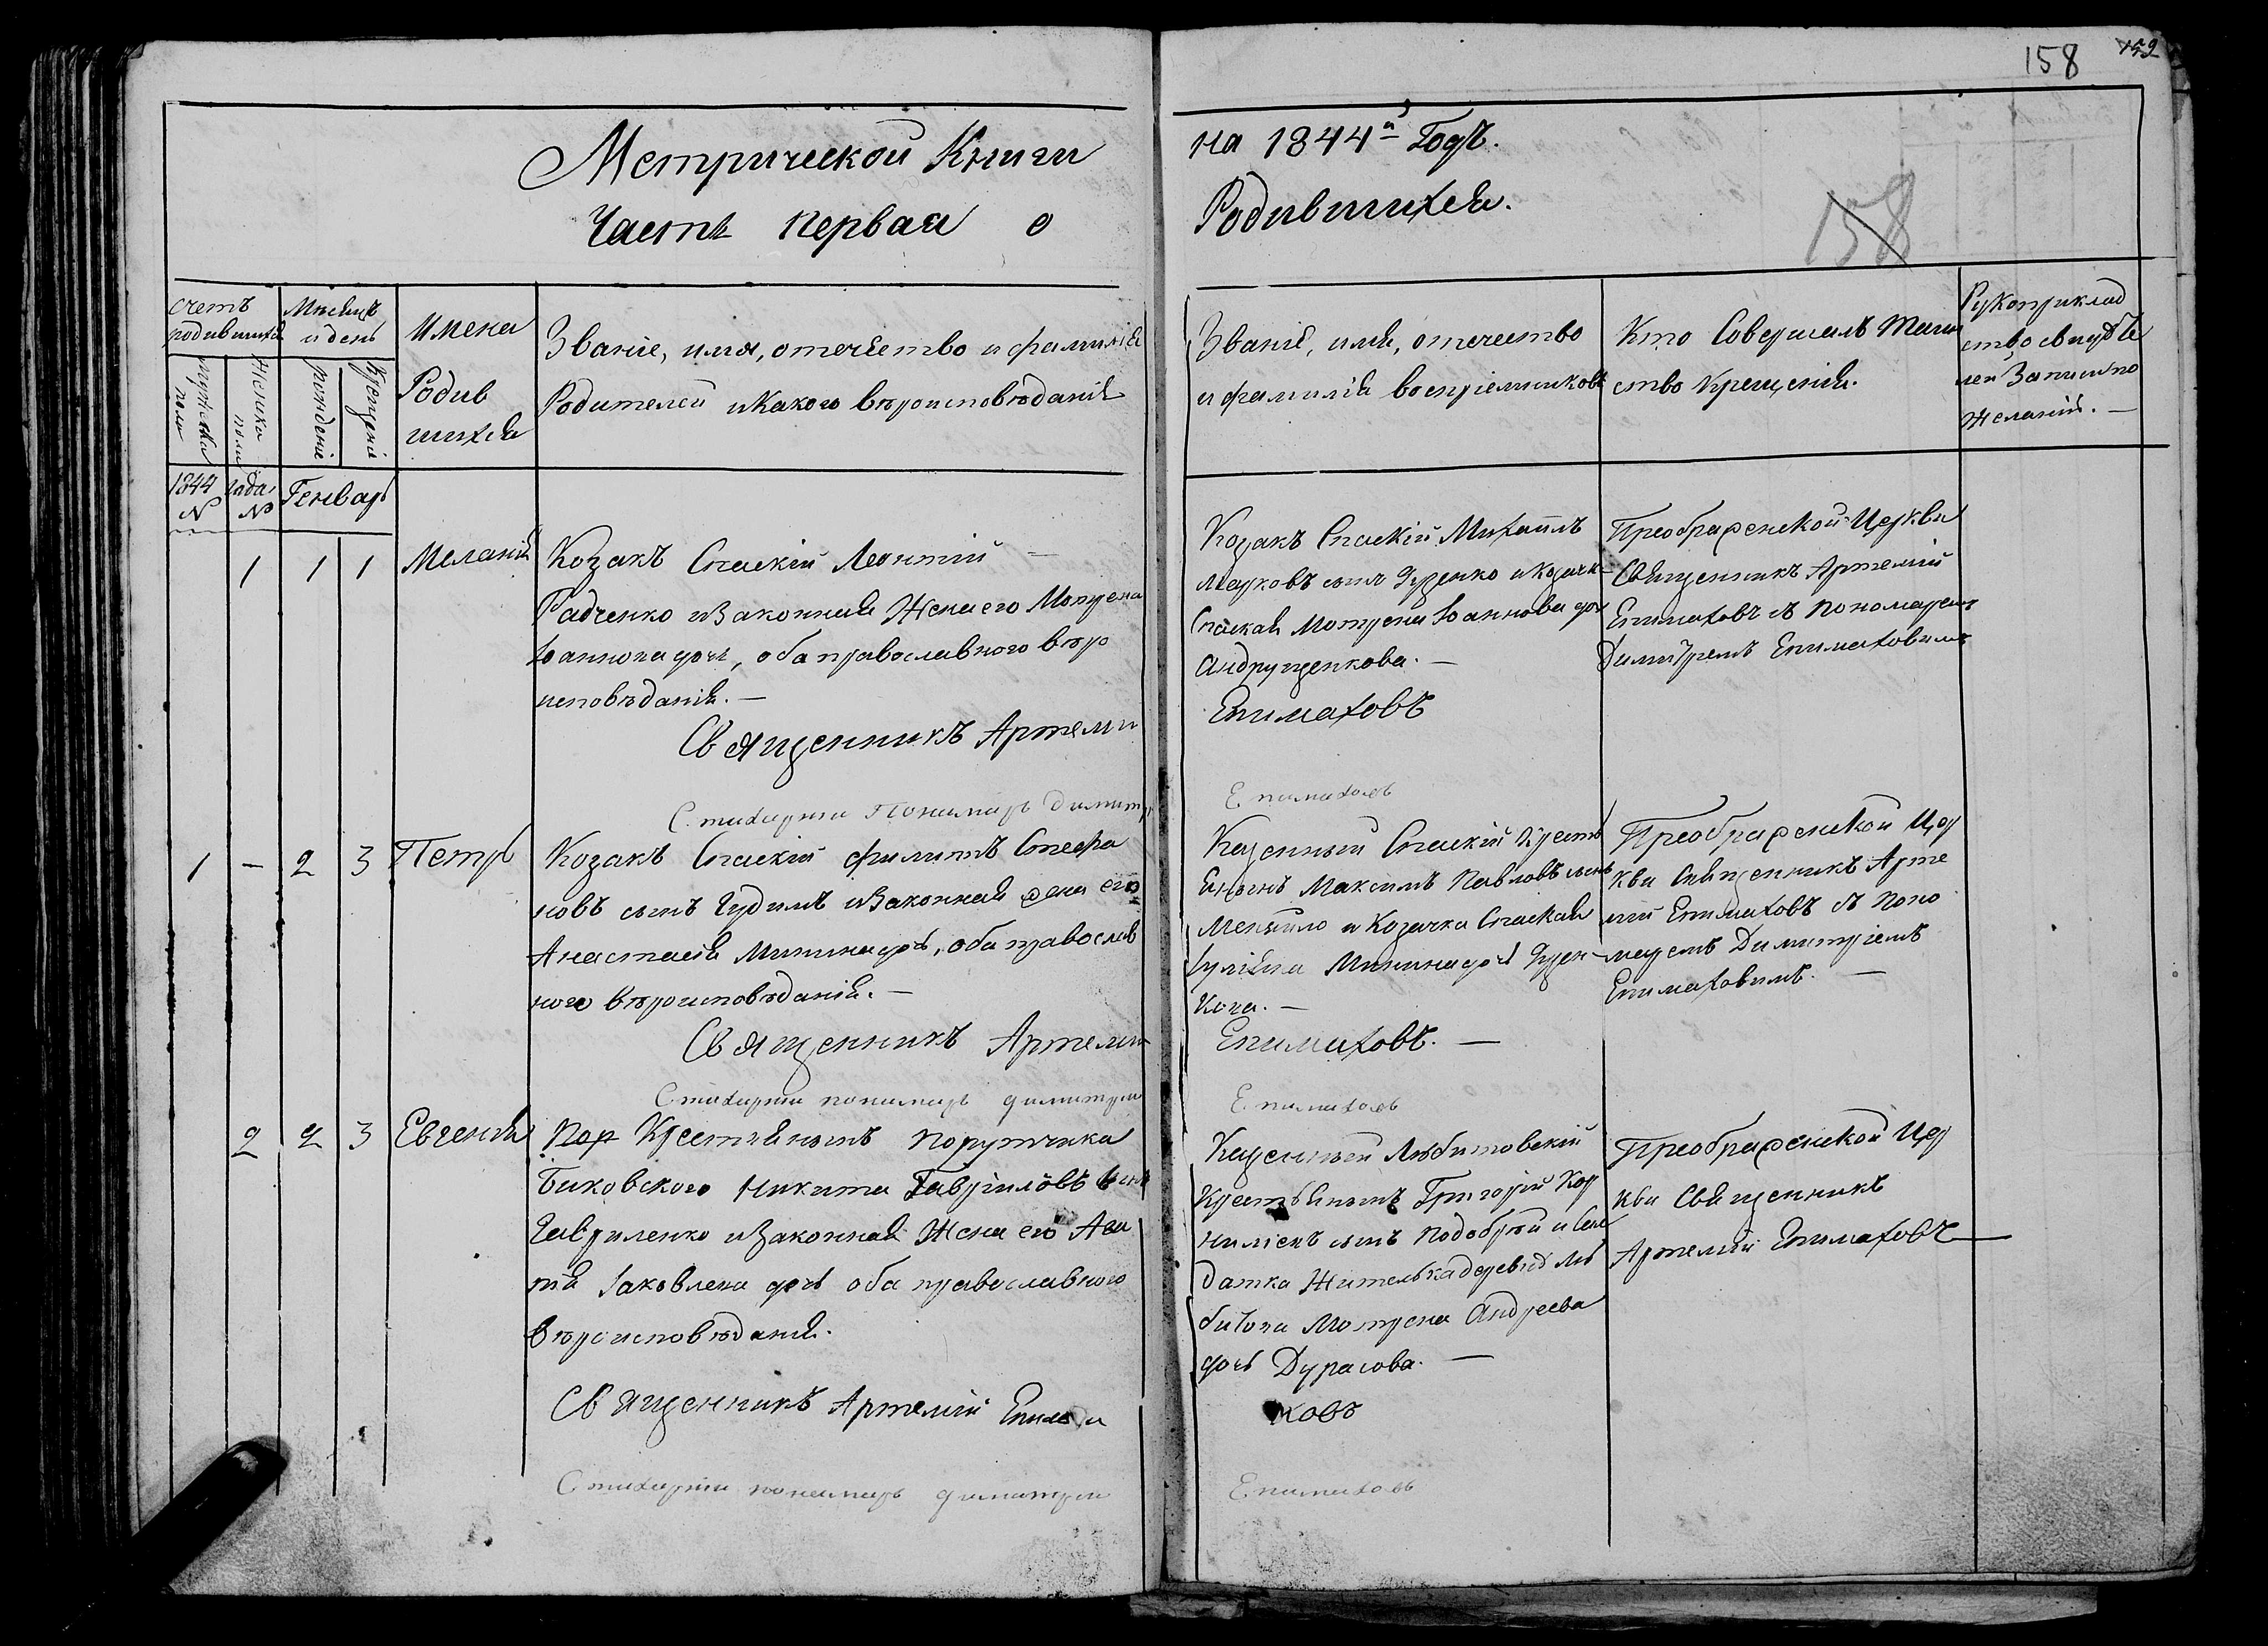 158
Метрической Книги
Часть первая о
на 1844й Годъ.
Родившихся.
158
счетъ родившихся
Мужеска пола
Женска пола
Мѣсяцъ и день
рожденіе
Крещеніе
Имена
Родив
шихся
Званіе, имя, отечество и фамилія
Родителей и какого вѣроисповѣданія
Званіе, имя, отечество
и фамилія воспріемниковъ
Кто Совершалъ Таин
ство Крещенія.
Рукоприклад
ство свидѣте
лей Записи по
желанію. —
1844 года
N No
Генварь
1 1 1
Меланія
Козакъ Спаскій Леонтій —
Радченко и Законная Жена его Мотрена
Іоаннова дочь, оба православного вѣро
исповѣданія. —
Священникъ Артемій
Стихарни Пономарь Димитрі
Козакъ Спаскій Михаилъ
Марковъ сынъ и козачк
Спаская Мотрена Іоаннова доч
Андрущенкова. —
Епимаховъ
Епимаховъ
Преображенской Церкви
Священникъ Артемій
Епимаховъ съ пономаремъ
Димитріемъ Епимаховимъ
1 — 2 3
Петръ
Козакъ Спаскій Филиппъ Стефа
новъ сынъ Гудимъ и Законная жена его
Анастасія Минина дочь, оба православ
ного вѣроисповѣданія. —
Священникъ Артемій
Стихарни пономарь димитрій
Казенный Спаскій Кресть
янинъ Максимъ Павловъ сынъ
и Козачка Спаская
Минина дочь
кова. —
Епимаховъ. —
Епимаховъ
Преображенской Цер
кви Священникъ Арте
мій Епимаховъ съ Поно
маремъ Димитріемъ
Епимаховимъ. —
2 2 3
Евгенія
Пор Крестьянинъ Порутчика
Биковского Никита Гавріиловъ сынъ
Гавриленко и Законная Жена его Ага
тія Іаковлева дочь оба православного
вѣроисповѣданія.
Священникъ Артемій Епима
Стихарни пономарь димитрій
Казенный Любитовскій
Крестьянинъ Григорій Кор
ниліевъ сынъ Подобрѣй и Сол
датка Жителька деревнѣ Лю
битова Мотрена Андреева
дочь Дурасова. —
ховъ
Епимаховъ
Преображенской Цер
кви Священникъ
Артемій Епимаховъ —